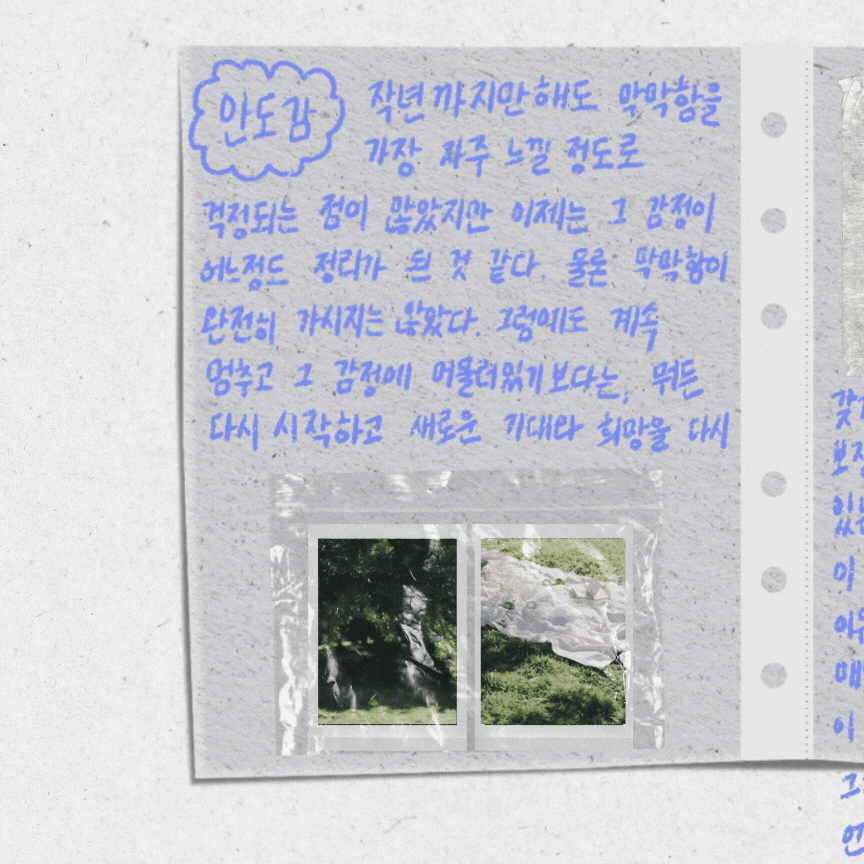 안도감
작년까지만해도 막막함을
가장 자주 느낄 정도로
걱정되는 점이 많았지만 이제는 그 감정이
어느정도 정리가 된 것 같다. 물론 막막함이
완전히 가시지는 않았다. 그럼에도 계속
멈추고 그 감정에 머물러있기 보다는, 뭐든
다시 시작하고 새로운 기대와 희망을 다시
이